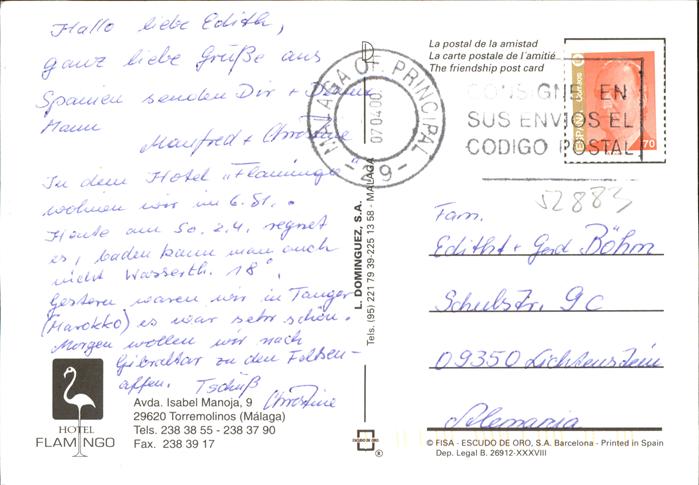 Hallo liebe Edith,
ganz liebe Grüße aus
Spanien senden Dir + Deinem
Mann
Manfred + Christine
In dem Hotel "Flamingo"
wohnen wir im 6. St.
Heute am So. 2.4. regnet
es, baden kann man auch
nicht Wasserth. 18°.
Gestern waren wir in Tanger
(Marokko) es war sehr schön.
Morgen wollen wir nach
Gibraltar zu den Felsen-
affen. Tschüß
Christine
HOTEL
FLAMINGO
Avda. Isabel Manoja, 9
29620 Torremolinos (Málaga)
Tels. 238 38 55 - 238 37 90
Fax. 238 39 17
L. DOMINGUEZ, S.A.
Tels. (95) 221 79 39-225 13 58 - MALAGA
ESCUDO DE ORO
®
La postal de la amistad
La carte postale de l'amitié
The friendship post card
MALAGA OF. PRINCIPAL
07 04 00
- 29 -
CONSIGNE EN
SUS ENVIOS EL
CODIGO POSTAL
ESPAÑA Correos
70
52883
Fam.
Edith + Gerd Böhm
Schulstr. 9c
09350 Lichtenstein
Alemania
© FISA - ESCUDO DE ORO, S.A. Barcelona - Printed in Spain
Dep. Legal B. 26912-XXXVIII